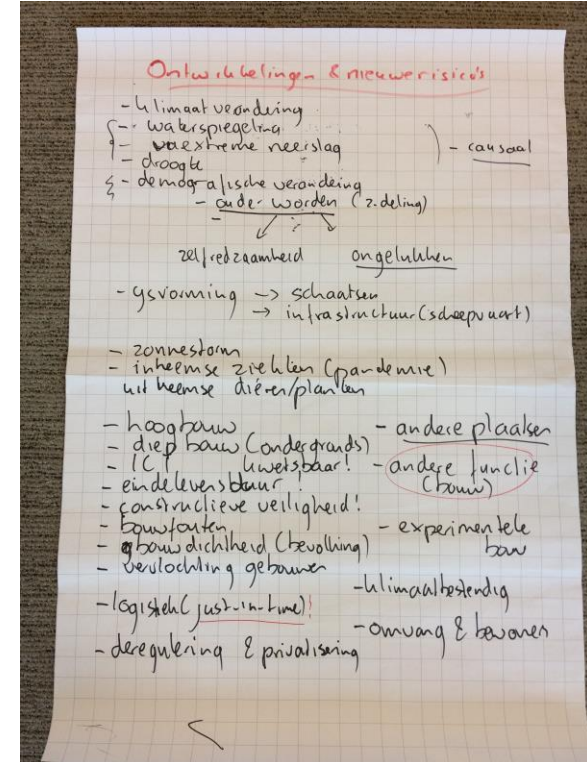 Ontwikkelingen & nieuwe risico's
- klimaatverandering
- waterspiegeling
- extreme neerslag
- causaal
- droogte
- demografische verandering
- ouder worden (z. deling)
zelfredzaamheid ongelukken
- ysvorming -> schaatsen
-> infrastructuur (scheepvaart)
- zonnestorm
- inheemse ziekten (pandemie)
uitheemse dieren/planten
- hoogbouw
- diepbouw (ondergronds)
- ICT kwetsbaar!
- eindelevensduur!
- constructieve veiligheid!
- bouwfouten
- bouwdichtheid (bevolking)
- vervlochting gebouwen
- logistiek (just-in-time)!
- deregulering & privatisering
- andere plaatsen
- andere functie
(bouw)
- experimentele
bouw
- klimaatbestendig
- omvang & bewoners